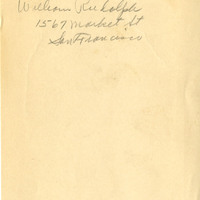 William Rudolph
1567 Market St
San Francisco